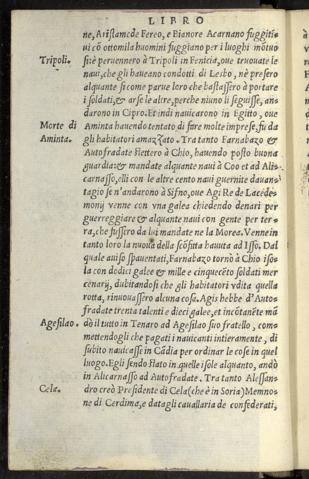 LIBRO
ne, Aristamcde Fereo, e Bianore Acarnano fuggiti-
ui cō ottomila huomini fuggiano per i luoghi mōtuo
Tripoli. si e peruennero à Tripoli in Fenicia, oue trouuate le
naui, che gli haueano condotti di Lesbo, nè presero
alquante si come parue loro che bastassero à portare
i soldati, & arse le altre, perche niuno li seguisse, an-
darono in Cipro. Et indi nauicarono in Egitto, oue
Morte di Aminta hauendo tentato di fare molte imprese, fù da
Aminta. gli habitatori amazzato. Tra tanto Farnabazo &
Autofradate stettero à Chio, hauendo posto buona
guardia & mandate alquante naui à Coo et ad Ali-
carnasso, elli con le altre cento naui guernite dauan-
tagio se n'andarono à Sifno, oue Agi Re de Lacede-
monij venne con vna galea chiedendo denari per
guerreggiare & alquante naui con gente per ter-
ra, che fussero da lui mandate ne la Morea. Venne in
tanto loro la nuoua della scōfitta hauuta ad Isso. Dal
quale auiso spauentati, Farnabazo tornò à Chio iso-
la con dodici galee & mille e cinquecēto soldati mer
cenarij, dubitando si che gli habitatori vdita quella
rotta, rinouassero alcuna cosa. Agis hebbe d'Auto-
fradate trenta talenti e dieci galee, et incōtanēte mā
Agesilao. dò il tutto in Tenaro ad Agesilao suo fratello, com-
mettendogli che pagati i nauicanti intieramente, di
subito nauicasse in Cādia per ordinar le cose in quel
luogo. Egli sendo stato in quelle isole alquanto, andò
in Alicarnasso ad Autofradate. Tra tanto Alessan-
Cela. dro creò Presidente di Cela (che è in Soria) Memno-
ne di Cerdima, e data gli cauallaria de confederati,